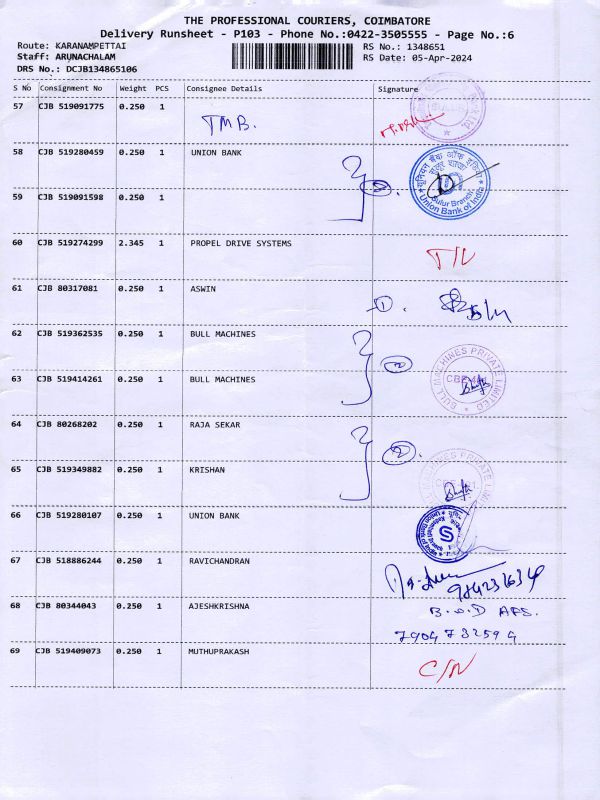 THE PROFESSIONAL COURIERS, COIMBATORE
Delivery Runsheet - P103 - Phone No.:0422-3505555 - Page No.:6
Route: KARANAMPETTAI
RS No.: 1348651
Staff: ARUNACHALAM
RS Date: 05-Apr-2024
DRS No.: DCJB134865106
S No Consignment No Weight PCS Consignee Details Signature
57 CJB 519091775 0.250 1 TMB.
58 CJB 519280459 0.250 1 UNION BANK
2.
यूनियन बैंक ऑफ इंडिया
Sulur Branch
Union Bank of India
59 CJB 519091598 0.250 1
60 CJB 519274299 2.345 1 PROPEL DRIVE SYSTEMS
61 CJB 80317081 0.250 1 ASWIN
1.
62 CJB 519362535 0.250 1 BULL MACHINES
2
BULL MACHINES PRIVATE LIMITED
63 CJB 519414261 0.250 1 BULL MACHINES
64 CJB 80268202 0.250 1 RAJA SEKAR
2.
BULL MACHINES PRIVATE LIMITED
65 CJB 519349882 0.250 1 KRISHAN
66 CJB 519280107 0.250 1 UNION BANK
67 CJB 518886244 0.250 1 RAVICHANDRAN
68 CJB 80344043 0.250 1 AJESHKRISHNA
69 CJB 519409073 0.250 1 MUTHUPRAKASH C/N